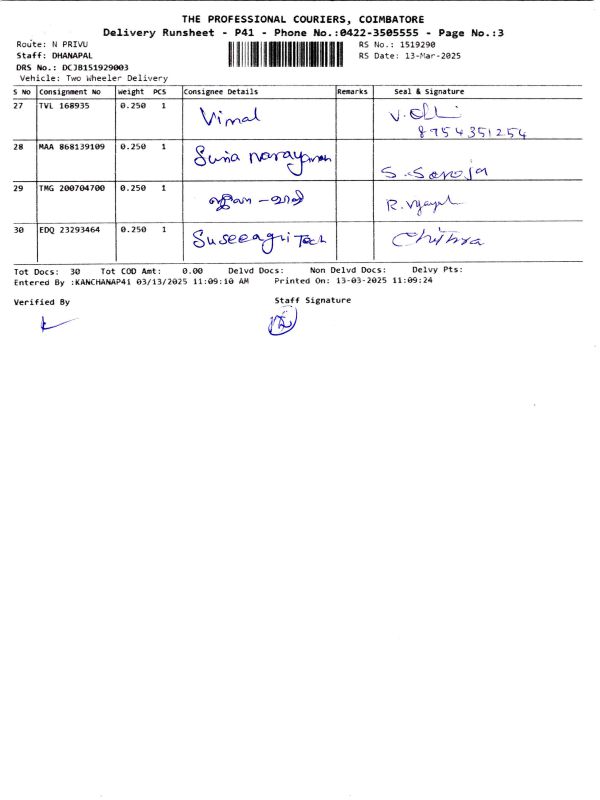 THE PROFESSIONAL COURIERS, COIMBATORE
Delivery Runsheet - P41 - Phone No.:0422-3505555 - Page No.:3
Route: N PRIVU
RS No.: 1519290
Staff: DHANAPAL
RS Date: 13-Mar-2025
DRS No.: DCJB151929003
Vehicle: Two Wheeler Delivery
S No Consignment No Weight PCS Consignee Details Remarks Seal & Signature
27 TVL 168935 0.250 1 Vimal
8954351254
28 MAA 868139109 0.250 1 narayanan S. Saroja
29 TMG 200704700 0.250 1 R.
30 EDQ 23293464 0.250 1 Suseeagri Tech Chithra
Tot Docs: 30 Tot COD Amt: 0.00 Delvd Docs: Non Delvd Docs: Delvy Pts:
Entered By :KANCHANAP41 03/13/2025 11:09:10 AM Printed On: 13-03-2025 11:09:24
Verified By Staff Signature